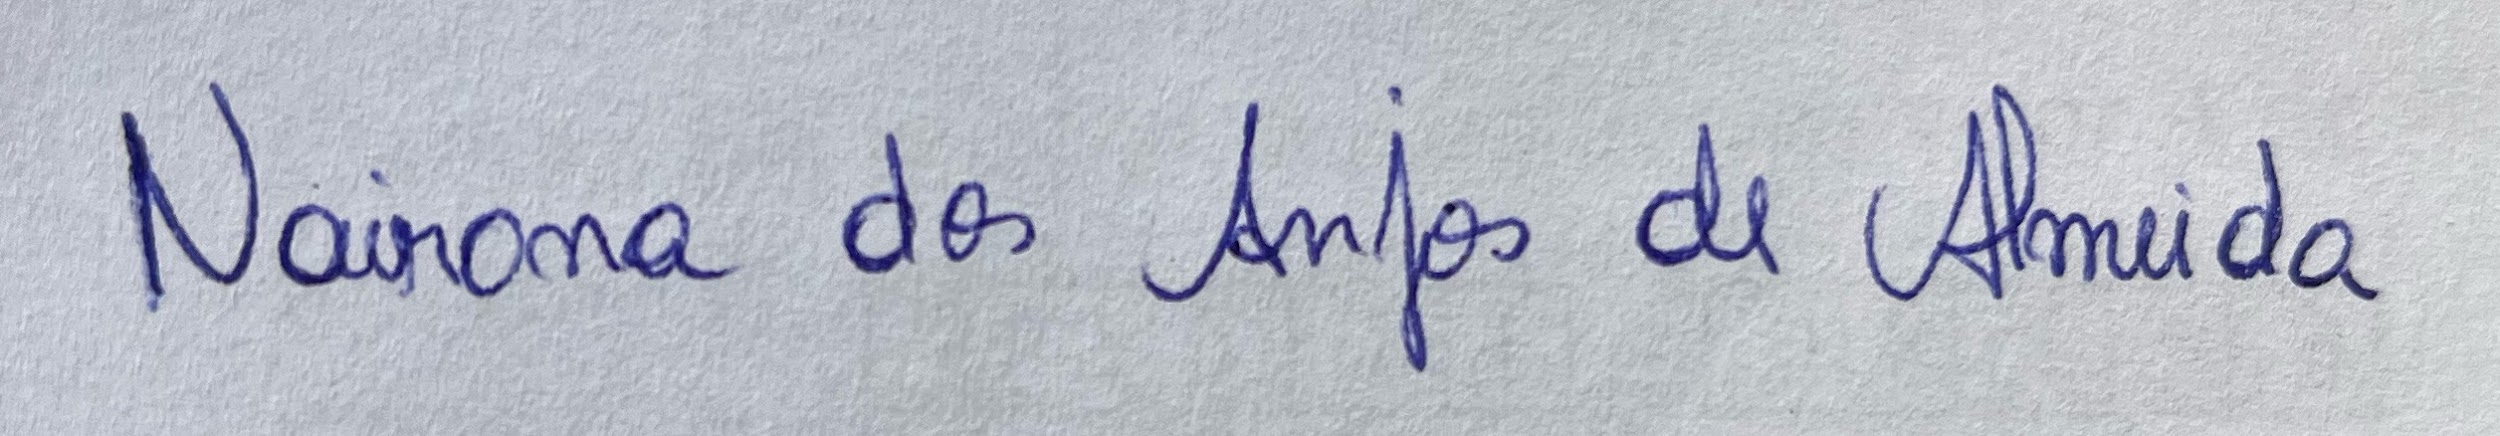 Nairona dos Anjos de Almeida